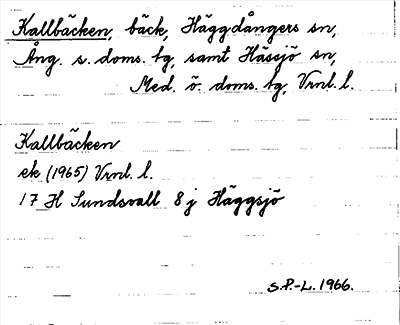 Kallbäcken, bäck, Häggdångers sn,
Ång. s. doms. tg, samt Hässjö sn,
Med. ö. doms. tg, Vrnl. l.
Kallbäcken
ek (1965) Vrnl. l.
17 H Sundsvall 8 j Häggsjö
S.P.-L. 1966.